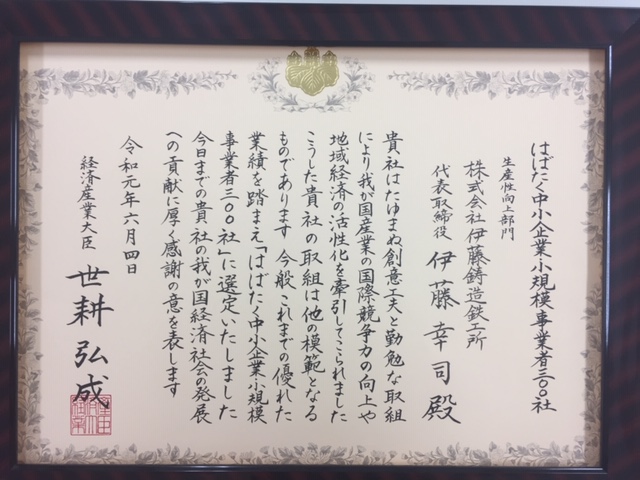 はばたく中小企業・小規模事業者三〇〇社
生産性向上部門
株式会社伊藤鋳造鉄工所
代表取締役 伊藤幸司殿
貴社はたゆまぬ創意工夫と勤勉な取組
により我が国産業の国際競争力の向上や
地域経済の活性化を牽引してこられました
こうした貴社の取組は他の模範となる
ものであります 今般これまでの優れた
業績を踏まえ「はばたく中小企業・小規模
事業者三〇〇社」に選定いたしました
今日までの貴社の我が国経済社会の発展
への貢献に厚く感謝の意を表します
令和元年六月四日
経済産業大臣 世耕弘成